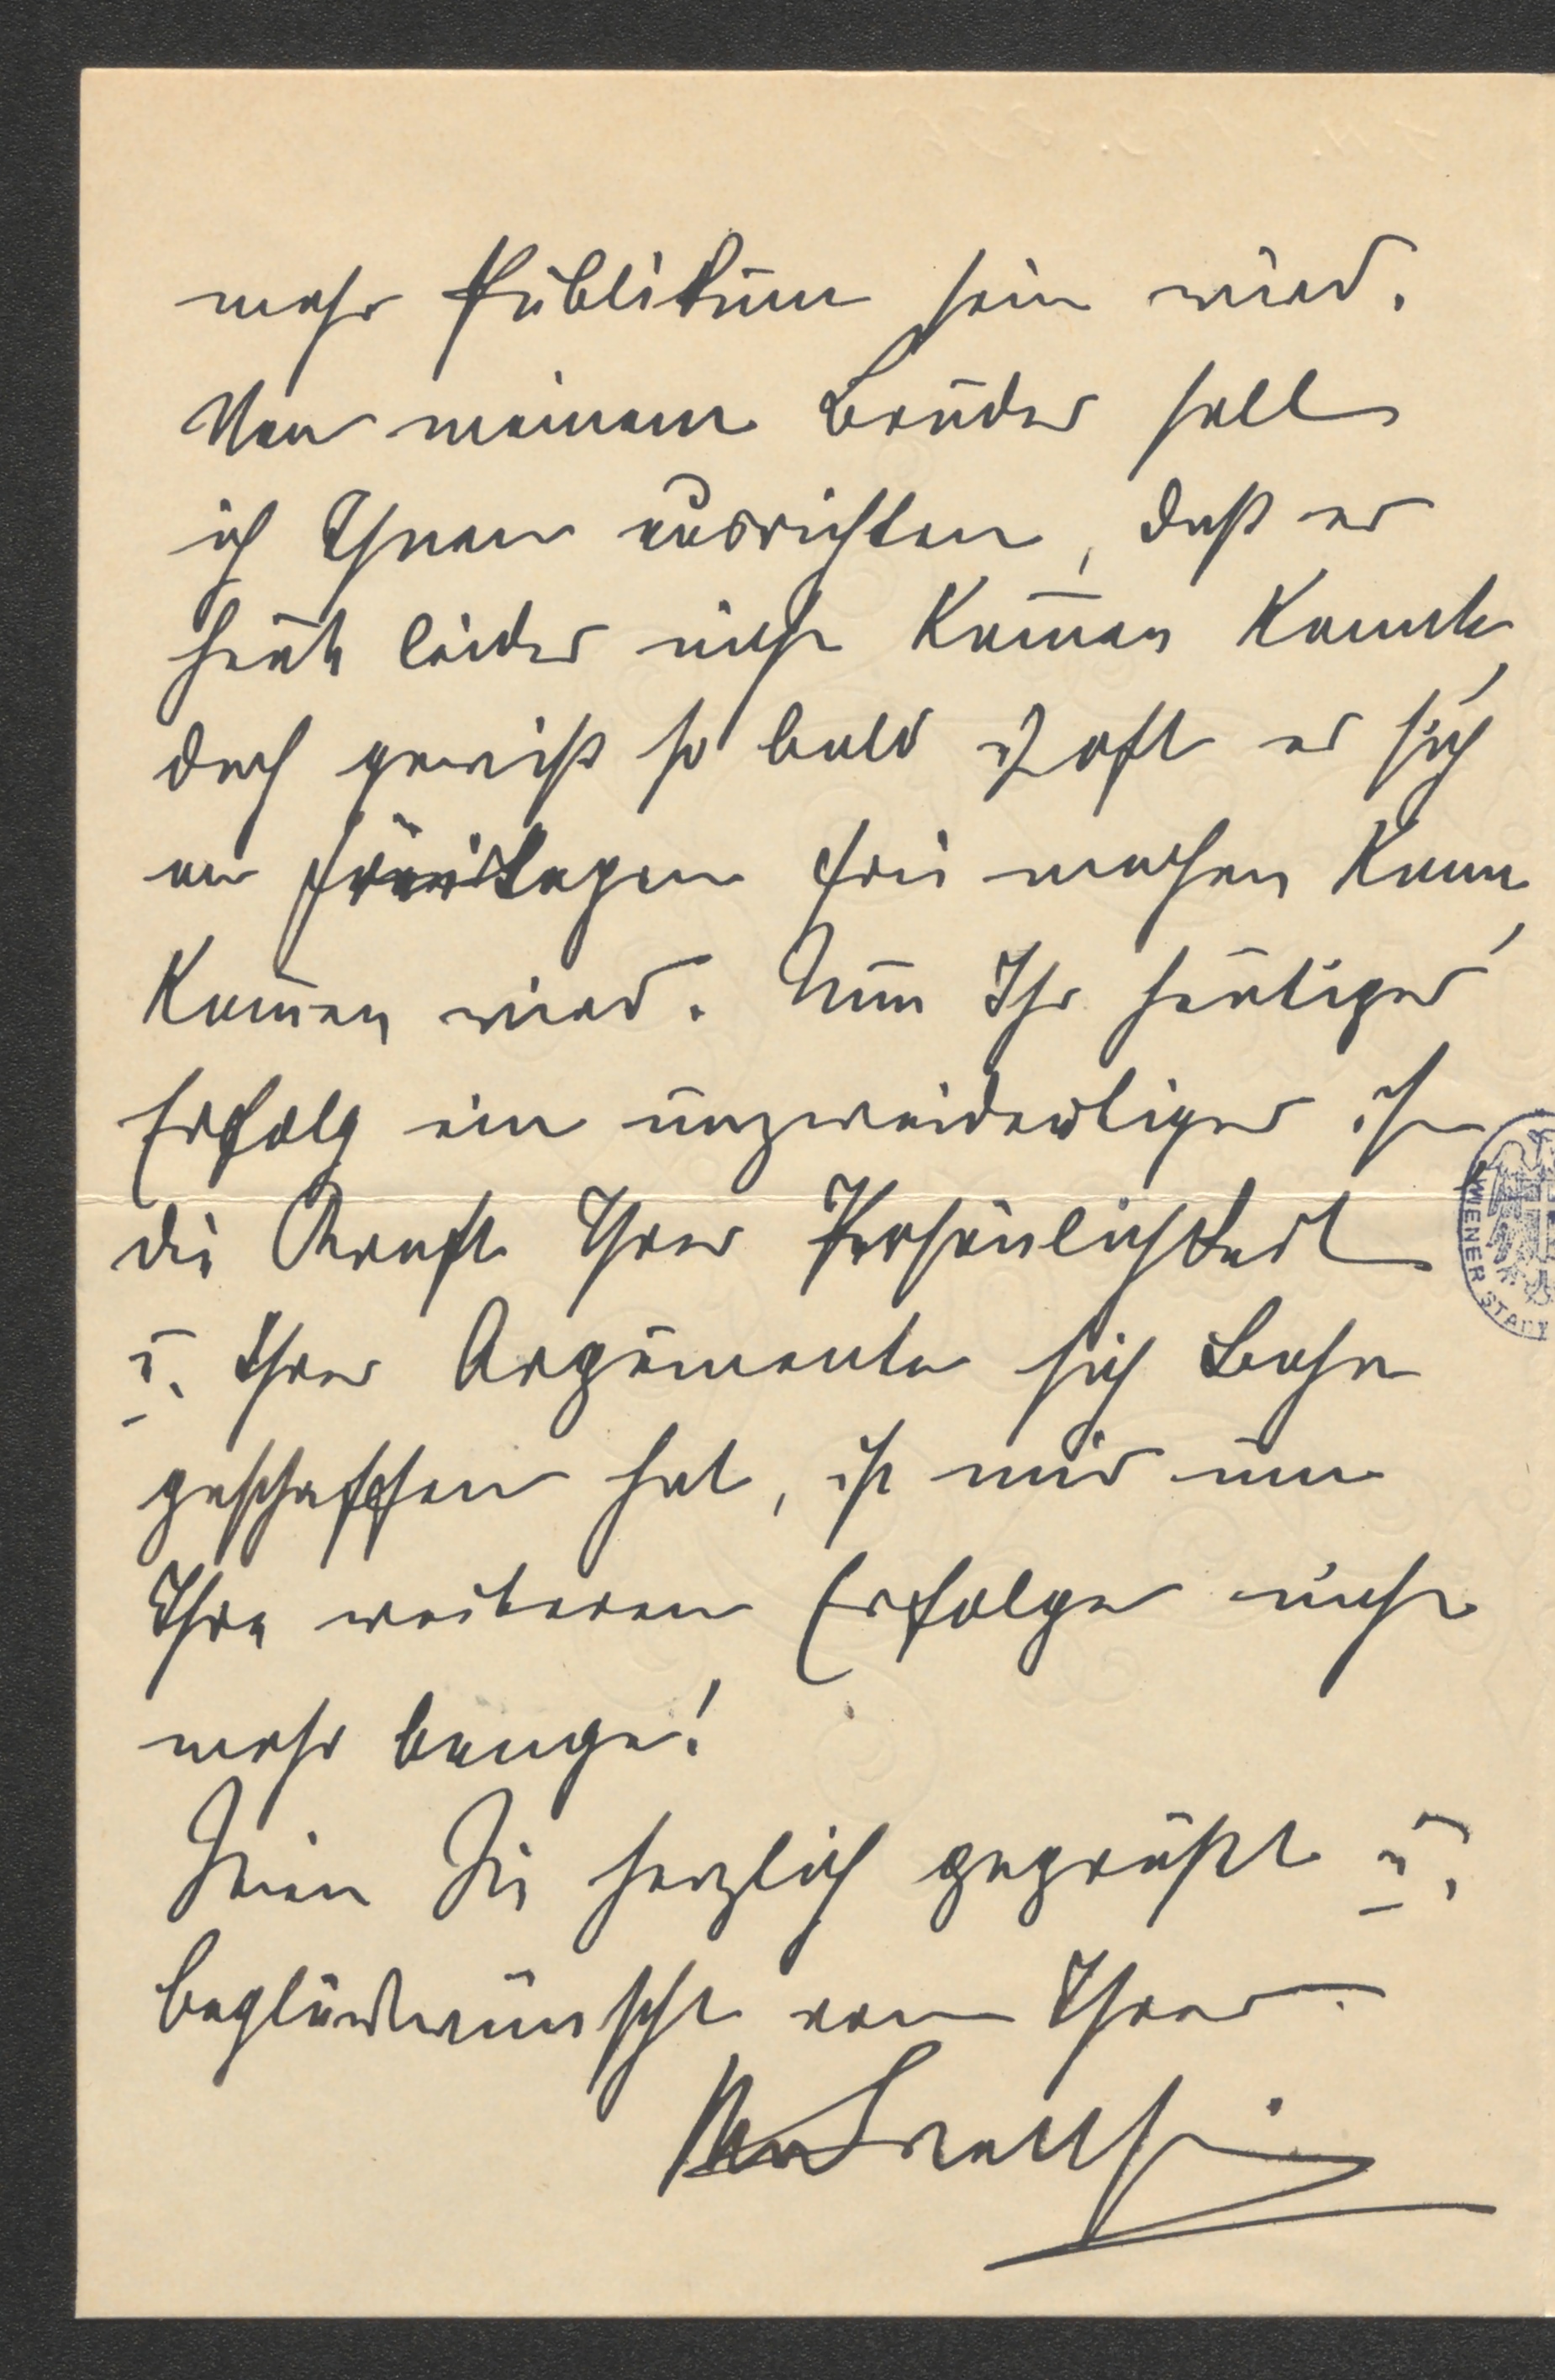 mehr Publikum sein wird.
Von meinem Bruder soll
ich Ihnen ausrichten, daß er
heute leider nicht kom̅en konnte,
doch gewiß so bald u. oft er sich
an Freitagen frei machen kann,
kom̅en wird. Nun Ihr heutiger
Erfolg ein unzweideutiger ist
die Kraft Ihrer Persönlichkeit
u. Ihrer Argumente sich Bahn
geschaffen hat, ist mir um
Ihre weiteren Erfolge nicht
mehr bange!
Seien Sie herzlich gegrüßt u.
beglückwünscht von Ihrer
WIENER STADT